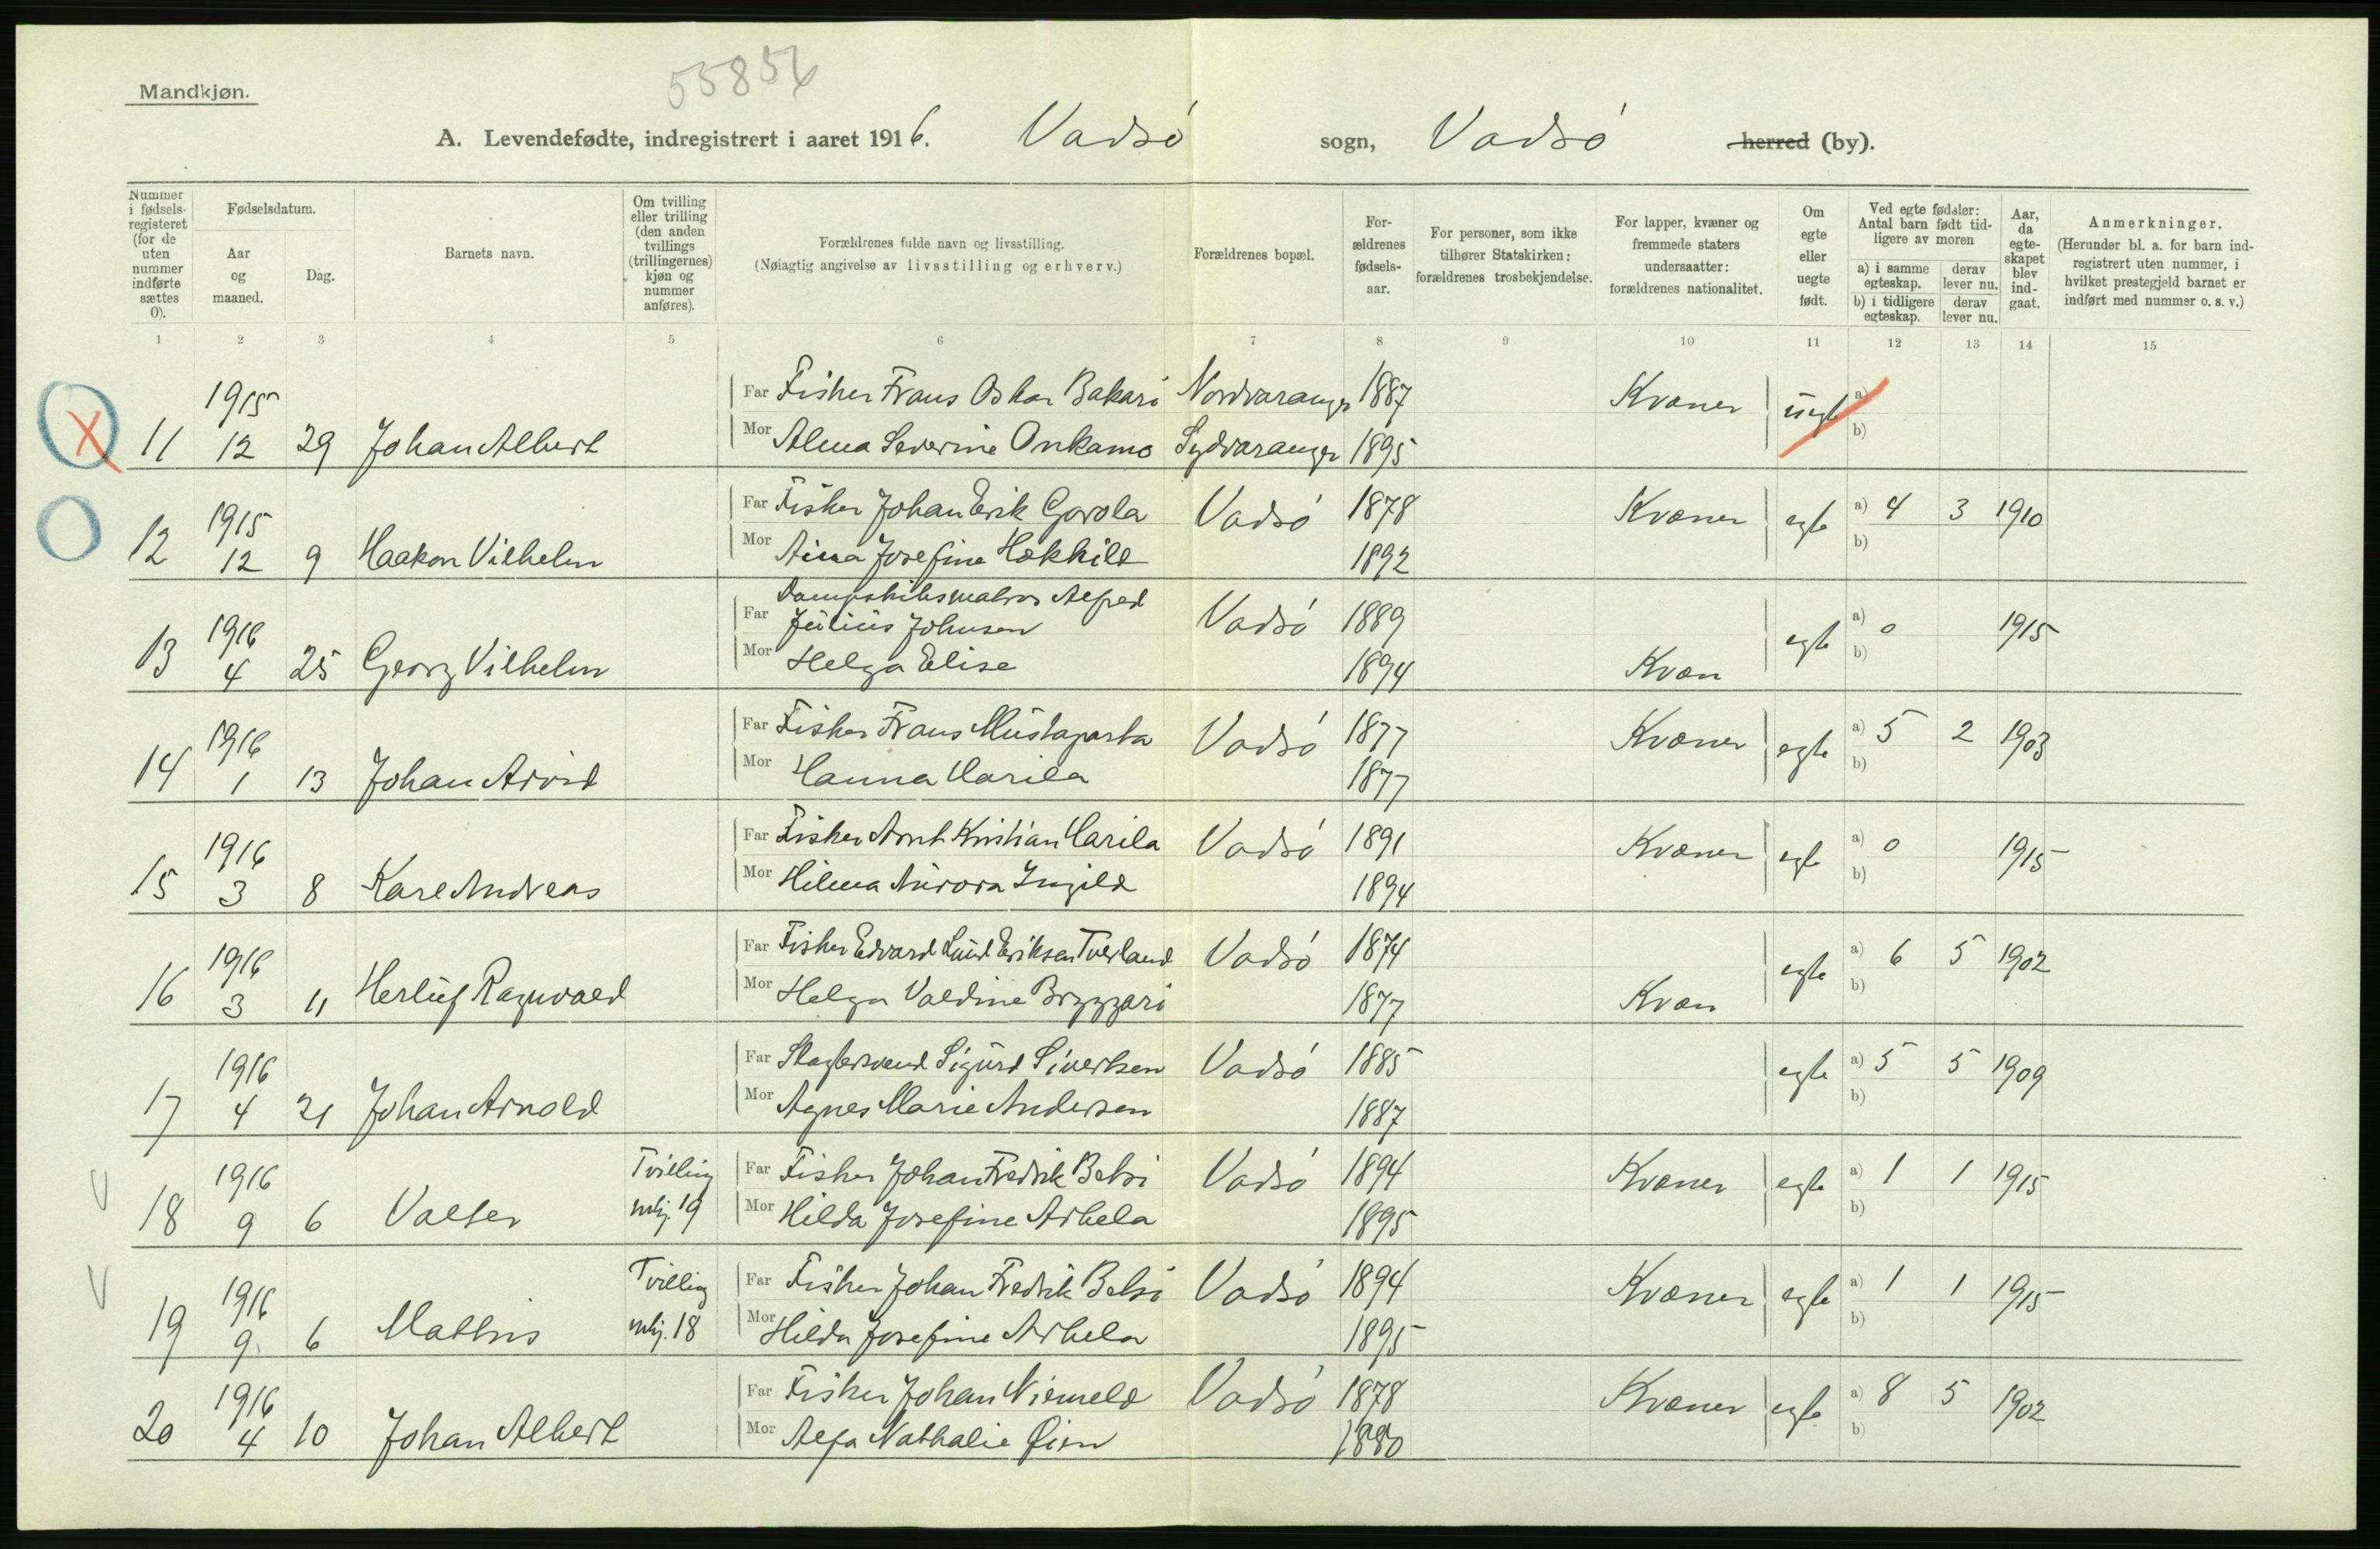 55856
Mandkjøn.
A. Levendefødte, indregistrert i aaret 1916. Vadsö sogn, Vadsö herred (by).
Nummer i fødselsregisteret (for de uten nummer indførte sættes 0).
Fødselsdatum.
Aar og maaned.
Dag.
Barnets navn.
Om tvilling eller trilling (den anden tvillings (trillingernes) kjøn og nummer anføres).
Forældrenes fulde navn og livsstilling.
(Nøiagtig angivelse av livsstilling og erhverv.)
Forældrenes bopæl.
Forældrenes fødselsaar.
For personer, som ikke tilhører Statskirken: forældrenes trosbekjendelse.
For lapper, kvæner og fremmede staters undersaatter: forældrenes nationalitet.
Om egte eller uegte født.
Ved egte fødsler: Antal barn født tidligere av moren
a) i samme egteskap. derav lever nu.
b) i tidligere egteskap. derav lever nu.
Aar, da egteskapet blev indgaat.
Anmerkninger.
(Herunder bl. a. for barn indregistrert uten nummer, i hvilket prestegjeld barnet er indført med nummer o. s. v.)
1 2 3 4 5 6 7 8 9 10 11 12 13 14 15
X 11 1915 12 29 Johan Albert Far Fisker Frans Oskar Bakari Nordvaranger 1887 Kvæner uegte a)
Mor Alma Severine Onkamo Sydvaranger 1895 b)
12 1915 12 9 Haakon Vilhelm Far Fisker Johan Erik Gorola Vadsö 1878 Kvæner egte a) 4 3 1910
Mor Aina Josefine 1892 b)
13 1916 4 25 Georg Vilhelm Far Dampskibsmatros Alfred
Julius Johnsen Vadsö 1889 egte a) 0 1915
Mor Helga Elise 1894 Kvæn b)
14 1916 1 13 Johan Arvid Far Fisker Frans Mustaparta Vadsö 1877 Kvæner egte a) 5 2 1903
Mor Hanna Marila 1877 b)
15 1916 3 8 Karl Andreas Far Fisker Arnt Kristian Marila Vadsö 1891 Kvæner egte a) 0 1915
Mor Hilma Aurora 1894 b)
16 1916 3 11 Herluf Ragnvald Far Fisker Edvard Lund Eriksen Tverland Vadsö 1874 egte a) 6 5 1902
Mor Helga Valdine 1877 Kvæn b)
17 1916 4 21 Johan Arnold Far Slagtersvend Sigurd Sivertsen Vadsö 1885 egte a) 5 5 1909
Mor Agnes Marie Andersen 1887 b)
V 18 1916 9 6 Valter Tvilling m/nr. 19 Far Fisker Johan Fredrik Belsi Vadsö 1894 Kvæner egte a) 1 1 1915
Mor Hilda Josefine Arkela 1895 b)
V 19 1916 9 6 Mathis Tvilling m/nr. 18 Far Fisker Johan Fredrik Belsi Vadsö 1894 Kvæner egte a) 1 1 1915
Mor Hilda Josefine Arkela 1895 b)
20 1916 4 10 Johan Albert Far Fisker Johan Niemelä Vadsö 1878 Kvæner egte a) 8 5 1902
Mor Alfa Nathalie Øien 1880 b)